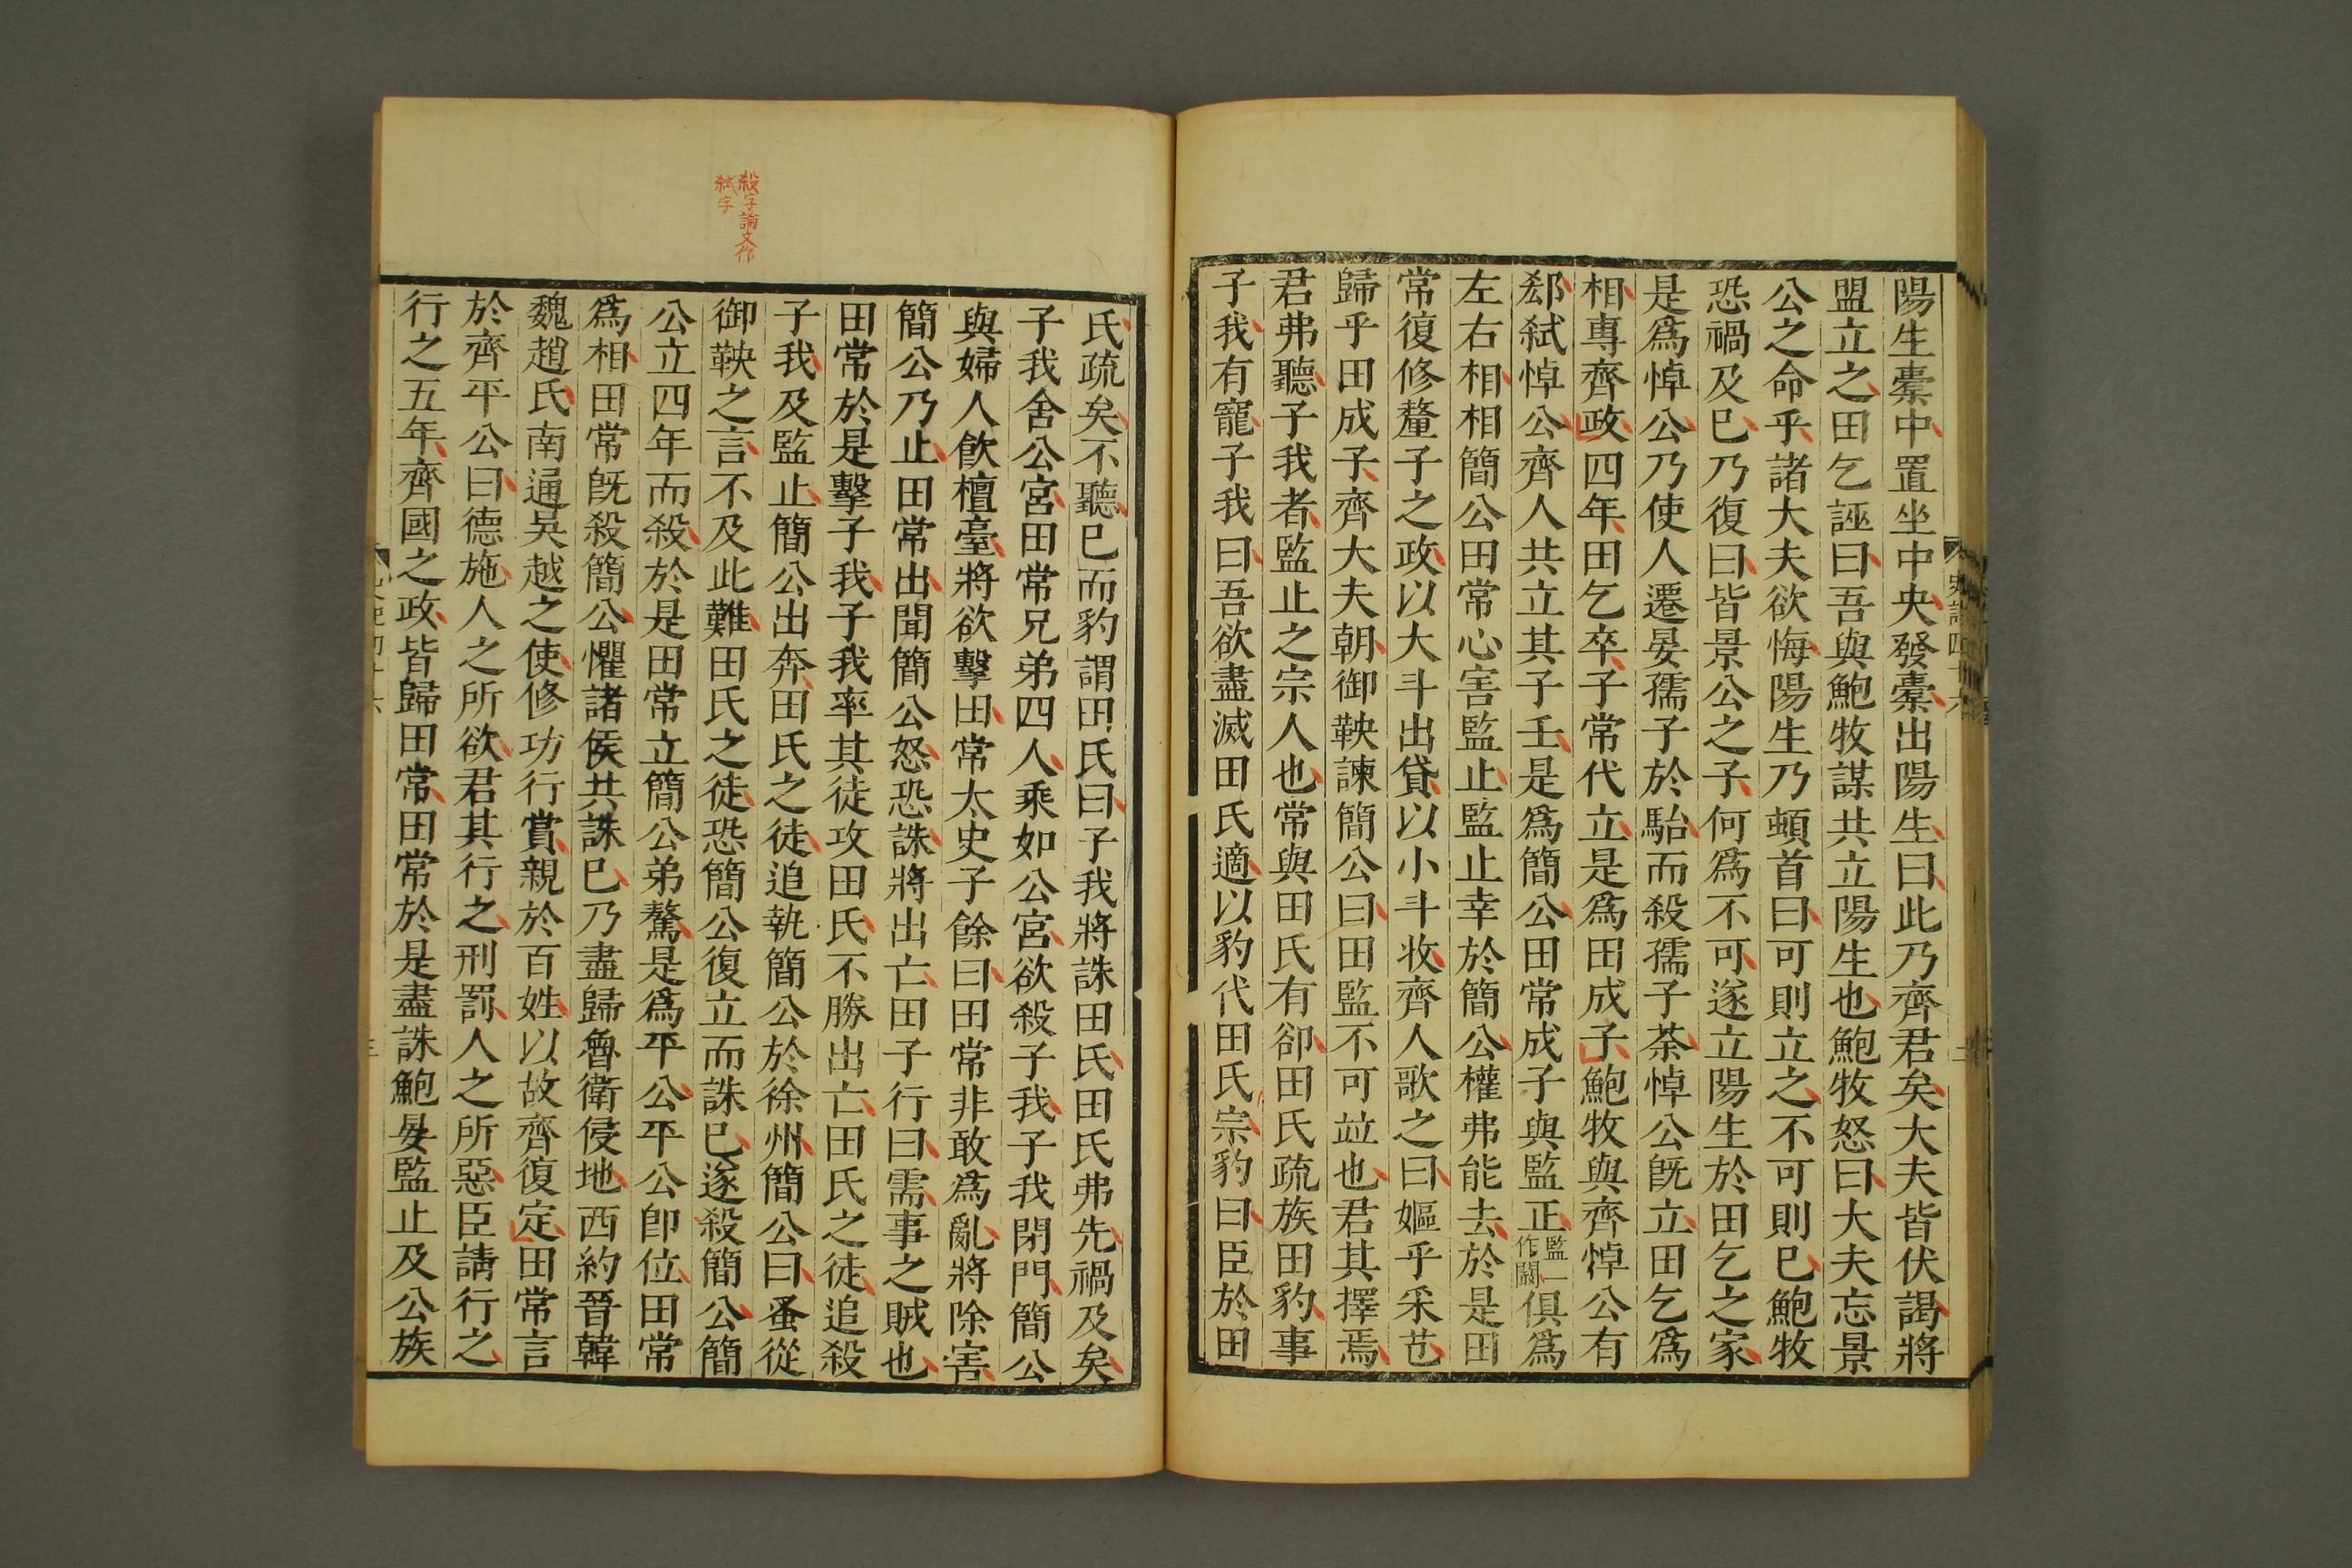 陽生橐中置坐中央發橐出陽生曰此乃齊君矣大夫皆伏謁將
盟立之田乞誣曰吾與鮑牧謀共立陽生也鮑牧怒曰大夫忘景
公之命乎諸大夫欲悔陽生乃頓首曰可則立之不可則已鮑牧
恐禍及已乃復曰皆景公之子何爲不可遂立陽生於田乞之家
是爲悼公乃使人遷晏孺子於駘而殺孺子荼悼公既立田乞爲
相專齊政四年田乞卒子常代立是爲田成子鮑牧與齊悼公有
郄弒悼公齊人共立其子壬是爲簡公田常成子與監正監一作闞俱爲
左右相相簡公田常心害監止監止幸於簡公權弗能去於是田
常復修釐子之政以大斗出貸以小斗收齊人歌之曰嫗乎采芑
歸乎田成子齊大夫朝御鞅諫簡公曰田監不可竝也君其擇焉
君弗聽子我者監止之宗人也常與田氏有卻田氏疏族田豹事
子我有寵子我曰吾欲盡滅田氏適以豹代田氏宗豹曰臣於田
史記四十六
氏疏矣不聽已而豹謂田氏曰子我將誅田氏田氏弗先禍及矣
子我舍公宮田常兄弟四人乘如公宮欲殺子我子我閉門簡公
與婦人飲檀臺將欲擊田常太史子餘曰田常非敢爲亂將除害
簡公乃止田常出聞簡公怒恐誅將出亡田子行曰需事之賊也
田常於是擊子我子我率其徒攻田氏不勝出亡田氏之徒追殺
子我及監止簡公出奔田氏之徒追執簡公於徐州簡公曰蚤從
御鞅之言不及此難田氏之徒恐簡公復立而誅已遂殺簡公簡
公立四年而殺於是田常立簡公弟驁是爲平公平公即位田常
爲相田常既殺簡公懼諸侯共誅已乃盡歸魯衛侵地西約晉韓
魏趙氏南通吳越之使修功行賞親於百姓以故齊復定田常言
於齊平公曰德施人之所欲君其行之刑罰人之所惡臣請行之
行之五年齊國之政皆歸田常田常於是盡誅鮑晏監止及公族
殺字論文作
弒字